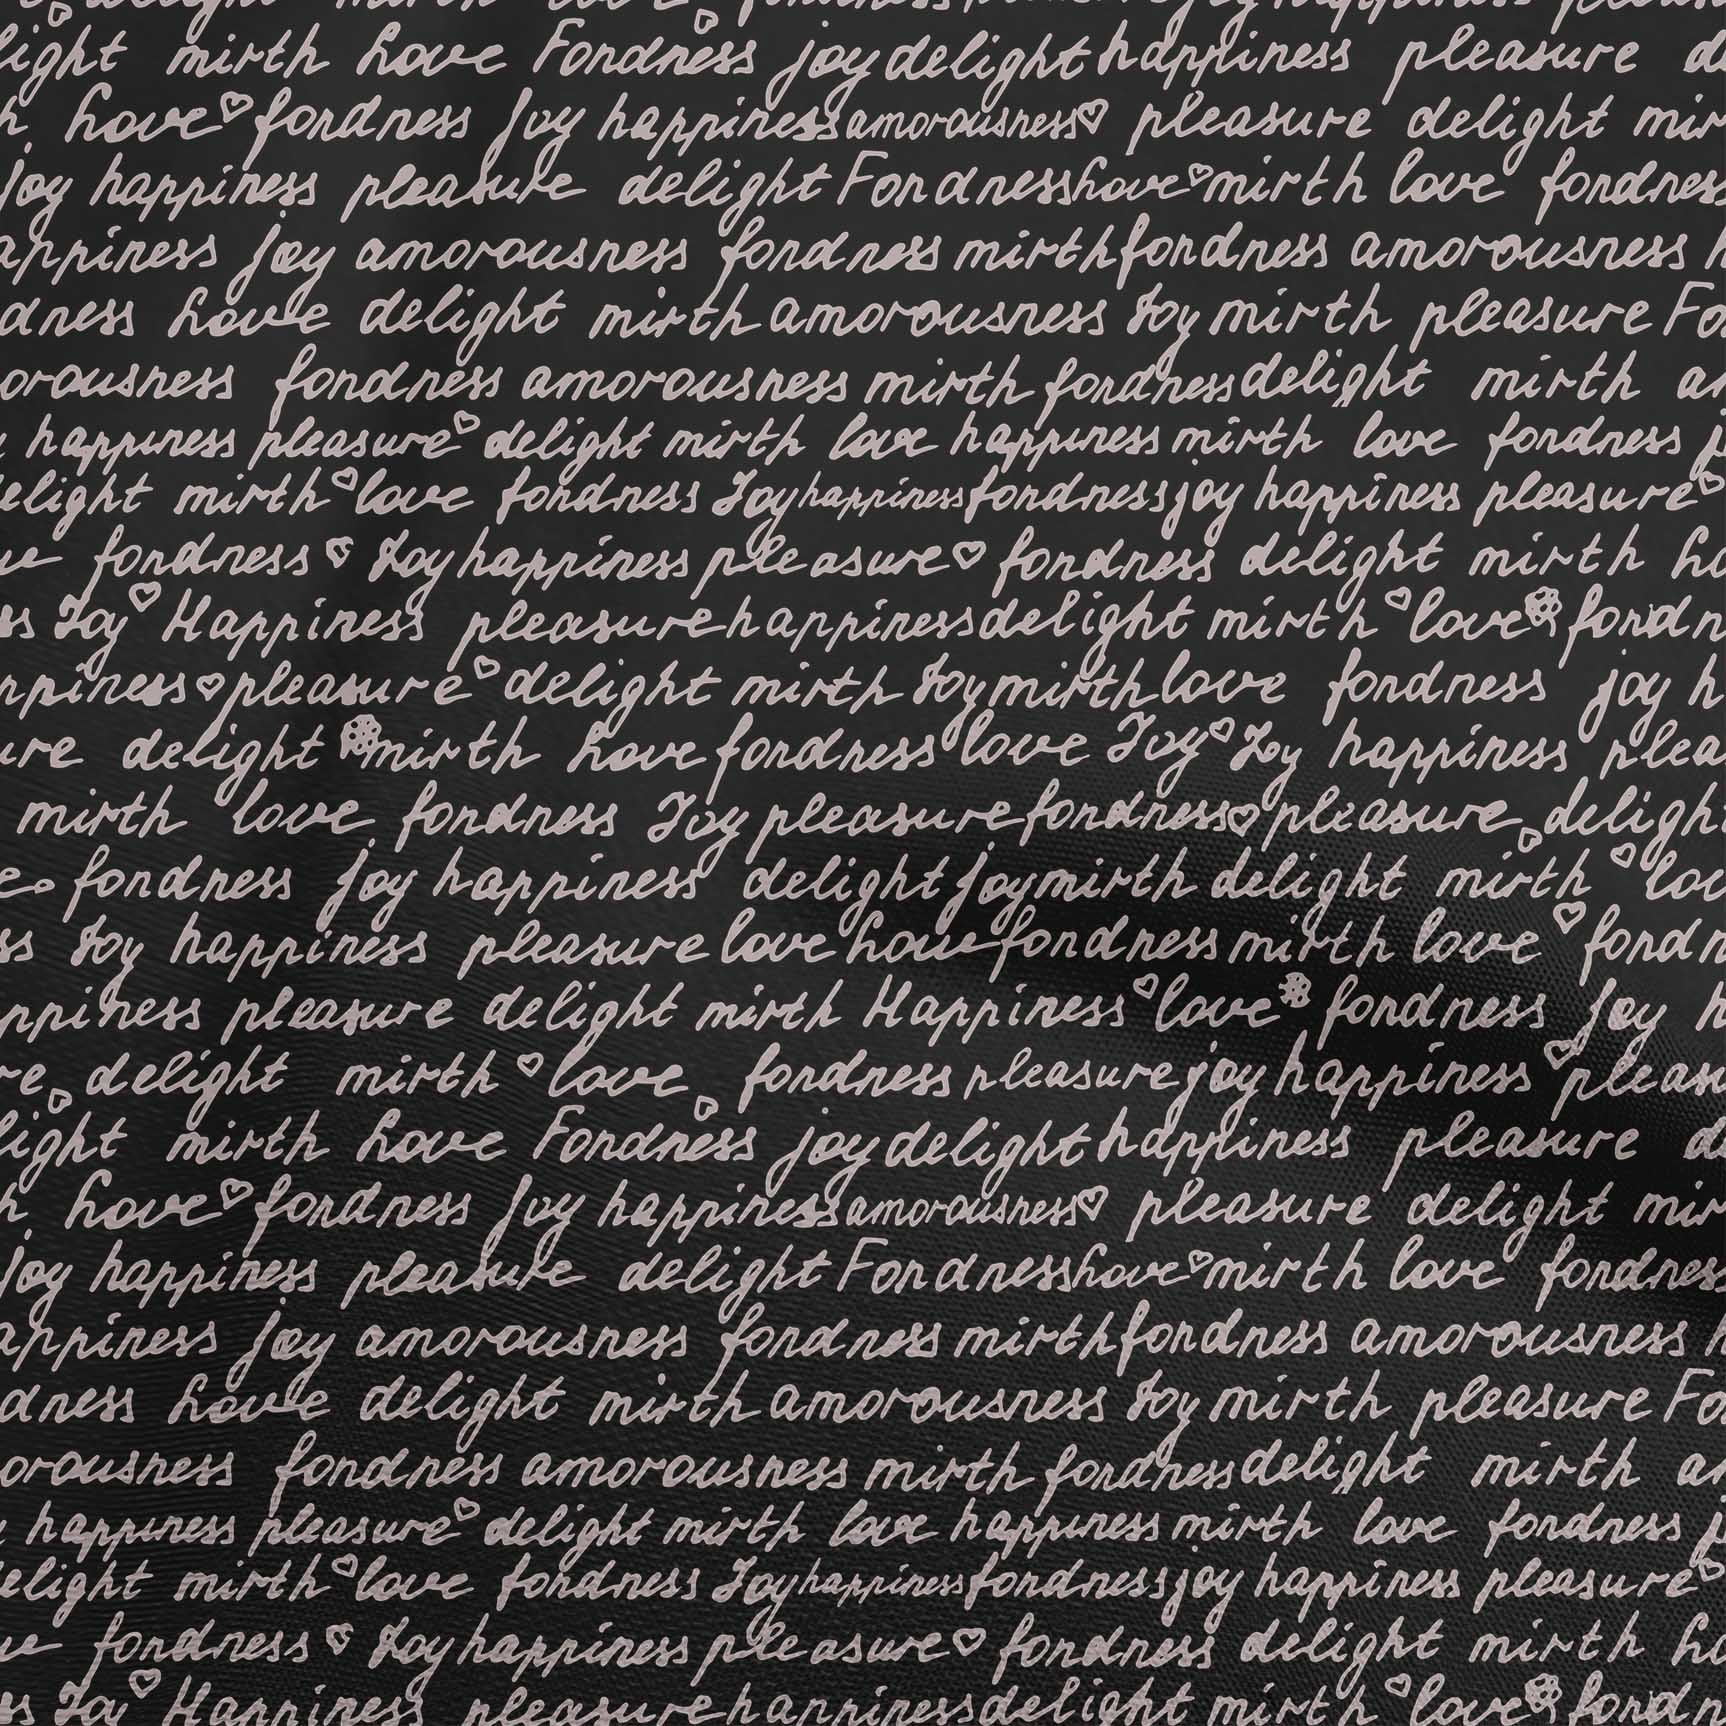 delight mirth love fondness joy happiness
light mirth love Fondness joy delight happiness pleasure
love fondness Joy happiness amorousness pleasure delight mir
joy happiness pleasure delight Fondness love mirth love fondness
appiness joy amorousness fondness mirth fondness amorousness
dness love delight mirth amorousness Joy mirth pleasure Fo
orousness fondness amorousness mirth fondness delight mirth am
happiness pleasure delight mirth love happiness mirth love fondness j
elight mirth love fondness Joy happiness fondness joy happiness pleasure
ve fondness Joy happiness pleasure fondness delight mirth lo
ss Joy Happiness pleasure happiness delight mirth love fondn
ppiness pleasure delight mirth Joy mirth love fondness joy h
ure delight mirth love fondness love Joy Joy happiness plea
mirth love fondness Joy pleasure fondness pleasure delight
e fondness joy happiness delight joy mirth delight mirth lov
ss Joy happiness pleasure love love fondness mirth love fondn
ppiness pleasure delight mirth Happiness love fondness Joy h
re delight mirth love fondness pleasure joy happiness pleasu
light mirth love Fondness joy delight happiness pleasure de
h love fondness Joy happiness amorousness pleasure delight mir
joy happiness pleasure delight Fondness love mirth love fondness
appiness joy amorousness fondness mirth fondness amorousness h
dness love delight mirth amorousness Joy mirth pleasure Fo
orousness fondness amorousness mirth fondness delight mirth am
happiness pleasure delight mirth love happiness mirth love fondness j
elight mirth love fondness Joy happiness fondness joy happiness pleasure
ve fondness Joy happiness pleasure fondness delight mirth lo
ss Joy Happiness pleasure happiness delight mirth love fondn